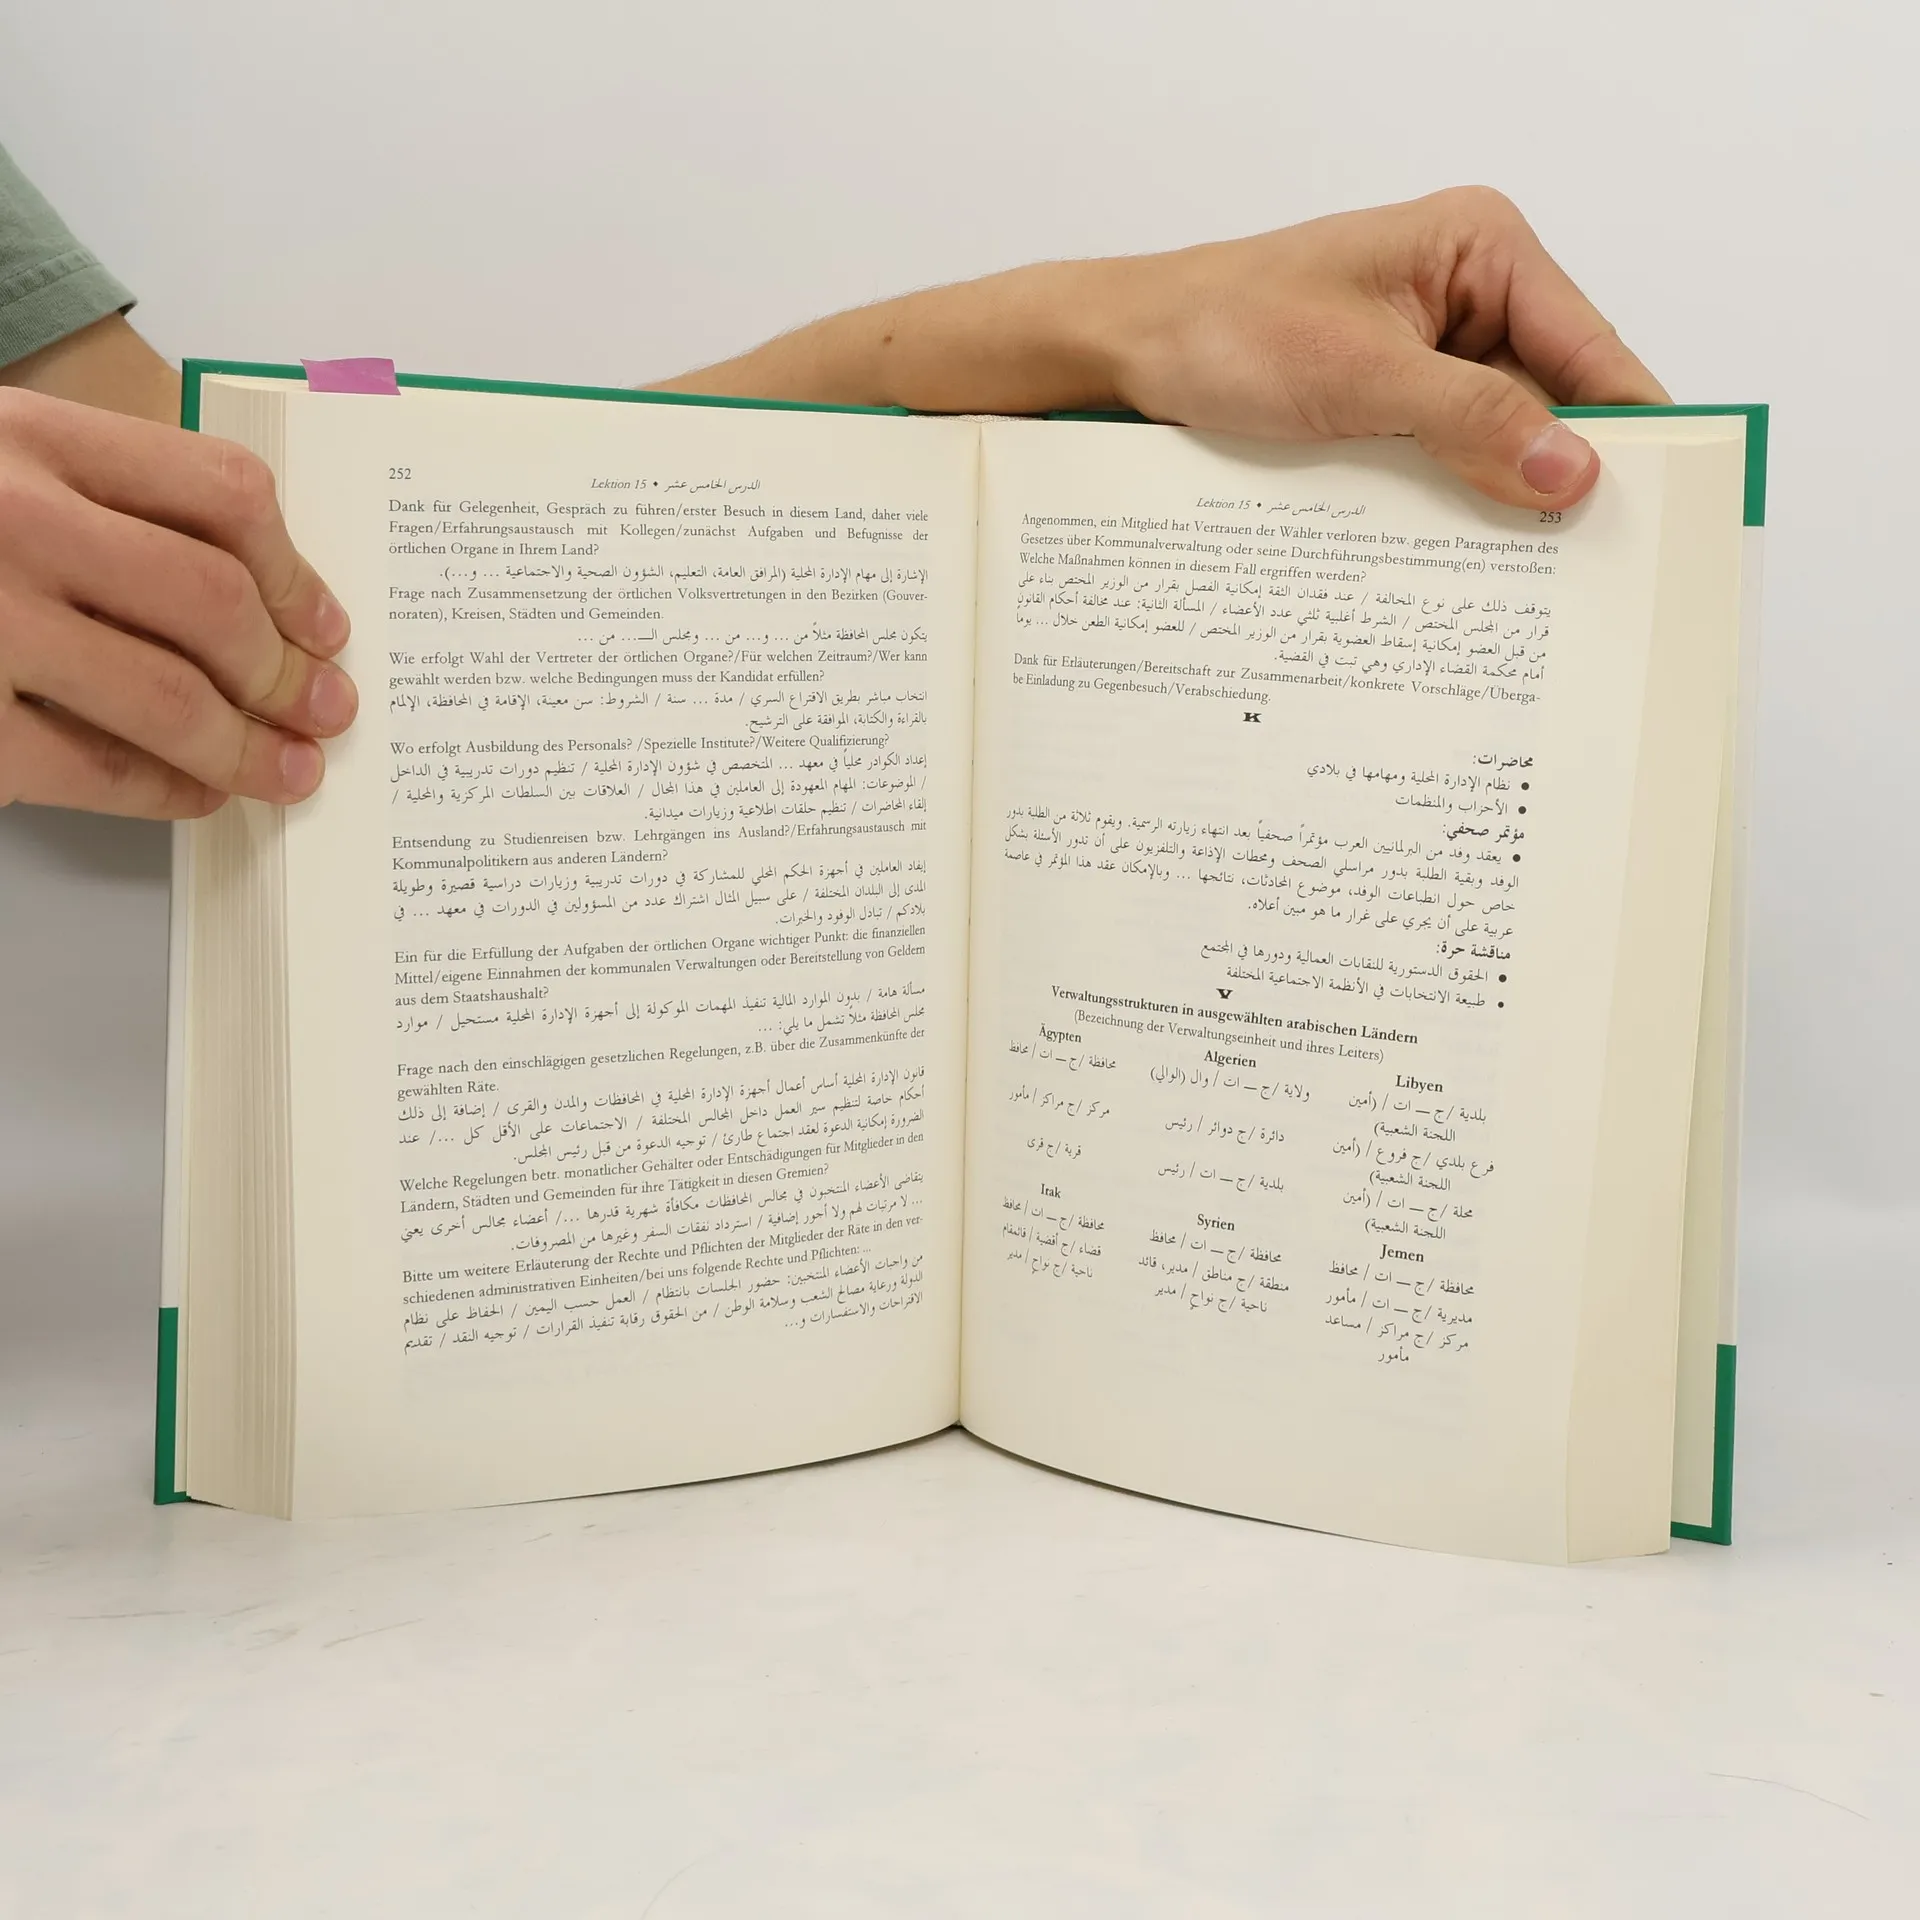 252
Lektion 15 • الدرس الخامس عشر
Dank für Gelegenheit, Gespräch zu führen/erster Besuch in diesem Land, daher viele
Fragen/Erfahrungsaustausch mit Kollegen/zunächst Aufgaben und Befugnisse der
örtlichen Organe in Ihrem Land?
الإشارة إلى مهام الإدارة المحلية (المرافق العامة، التعليم، الشؤون الصحية والاجتماعية ... و...).
Frage nach Zusammensetzung der örtlichen Volksvertretungen in den Bezirken (Gouver-
noraten), Kreisen, Städten und Gemeinden.
يتكون مجلس المحافظة مثلاً من ... و... من ... ومجلس الـ... من ...
Wie erfolgt Wahl der Vertreter der örtlichen Organe?/Für welchen Zeitraum?/Wer kann
gewählt werden bzw. welche Bedingungen muss der Kandidat erfüllen?
انتخاب مباشر بطريق الاقتراع السري / مدة ... سنة / الشروط: سن معينة، الإقامة في المحافظة، الإلمام
بالقراءة والكتابة، الموافقة على الترشيح.
Wo erfolgt Ausbildung des Personals? /Spezielle Institute?/Weitere Qualifizierung?
إعداد الكوادر محلياً في معهد ... المتخصص في شؤون الإدارة المحلية / تنظيم دورات تدريبية في الداخل
/ الموضوعات: المهام المعهودة إلى العاملين في هذا المجال / العلاقات بين السلطات المركزية والمحلية /
إلقاء المحاضرات / تنظيم حلقات اطلاعية وزيارات ميدانية.
Entsendung zu Studienreisen bzw. Lehrgängen ins Ausland?/Erfahrungsaustausch mit
Kommunalpolitikern aus anderen Ländern?
إيفاد العاملين في أجهزة الحكم المحلي للمشاركة في دورات تدريبية وزيارات دراسية قصيرة وطويلة
المدى إلى البلدان المختلفة / على سبيل المثال اشتراك عدد من المسؤولين في الدورات في معهد ... في
بلادكم / تبادل الوفود والخبرات.
Ein für die Erfüllung der Aufgaben der örtlichen Organe wichtiger Punkt: die finanziellen
Mittel/eigene Einnahmen der kommunalen Verwaltungen oder Bereitstellung von Geldern
aus dem Staatshaushalt?
مسألة هامة / بدون الموارد المالية تنفيذ المهمات الموكولة إلى أجهزة الإدارة المحلية مستحيل / موارد
مجلس المحافظة مثلاً تشمل ما يلي: ...
Frage nach den einschlägigen gesetzlichen Regelungen, z.B. über die Zusammenkünfte der
gewählten Räte.
قانون الإدارة المحلية أساس أعمال أجهزة الإدارة المحلية في المحافظات والمدن والقرى / إضافة إلى ذلك
أحكام خاصة لتنظيم سير العمل داخل المجالس المختلفة / الاجتماعات على الأقل كل .../ عند
الضرورة إمكانية الدعوة لعقد اجتماع طارئ / توجيه الدعوة من قبل رئيس المجلس.
Welche Regelungen betr. monatlicher Gehälter oder Entschädigungen für Mitglieder in den
Ländern, Städten und Gemeinden für ihre Tätigkeit in diesen Gremien?
يتقاضى الأعضاء المنتخبون في مجالس المحافظات مكافأة شهرية قدرها .../ أعضاء مجالس أخرى يعني
... لا مرتبات لهم ولا أجور إضافية / استرداد نفقات السفر وغيرها من المصروفات.
Bitte um weitere Erläuterung der Rechte und Pflichten der Mitglieder der Räte in den ver-
schiedenen administrativen Einheiten/bei uns folgende Rechte und Pflichten: ...
من واجبات الأعضاء المنتخبين: حضور الجلسات بانتظام / العمل حسب اليمين / الحفاظ على نظام
الدولة ورعاية مصالح الشعب وسلامة الوطن / من الحقوق رقابة تنفيذ القرارات / توجيه النقد / تقديم
الاقتراحات والاستفسارات و...
Lektion 15 • الدرس الخامس عشر
253
Angenommen, ein Mitglied hat Vertrauen der Wähler verloren bzw. gegen Paragraphen des
Gesetzes über Kommunalverwaltung oder seine Durchführungsbestimmung(en) verstoßen:
Welche Maßnahmen können in diesem Fall ergriffen werden?
يتوقف ذلك على نوع المخالفة / عند فقدان الثقة إمكانية الفصل بقرار من الوزير المختص بناء على
قرار من المجلس المختص / الشرط أغلبية ثلثي عدد الأعضاء / المسألة الثانية: عند مخالفة أحكام القانون
من قبل العضو إمكانية إسقاط العضوية بقرار من الوزير المختص / للعضو إمكانية الطعن خلال ... يوماً
أمام محكمة القضاء الإداري وهي تبت في القضية.
Dank für Erläuterungen/Bereitschaft zur Zusammenarbeit/konkrete Vorschläge/Überga-
be Einladung zu Gegenbesuch/Verabschiedung.
K
محاضرات:
● نظام الإدارة المحلية ومهامها في بلادي
● الأحزاب والمنظمات
مؤتمر صحفي:
● يعقد وفد من البرلمانيين العرب مؤتمراً صحفياً بعد انتهاء زيارته الرسمية. ويقوم ثلاثة من الطلبة بدور
الوفد وبقية الطلبة بدور مراسلي الصحف ومحطات الإذاعة والتلفزيون على أن تدور الأسئلة بشكل
خاص حول انطباعات الوفد، موضوع المحادثات، نتائجها ... وبالإمكان عقد هذا المؤتمر في عاصمة
عربية على أن يجري على غرار ما هو مبين أعلاه.
مناقشة حرة:
● الحقوق الدستورية للنقابات العمالية ودورها في المجتمع
● طبيعة الانتخابات في الأنظمة الاجتماعية المختلفة
V
Verwaltungsstrukturen in ausgewählten arabischen Ländern
(Bezeichnung der Verwaltungseinheit und ihres Leiters)
Ägypten
محافظة /ج ـــ ات / محافظ
مركز /ج مراكز / مأمور
قرية /ج قرى
Algerien
ولاية /ج ـــ ات / وال (الوالي)
دائرة /ج دوائر / رئيس
بلدية /ج ـــ ات / رئيس
Libyen
بلدية /ج ـــ ات / (أمين
اللجنة الشعبية)
فرع بلدي /ج فروع / (أمين
اللجنة الشعبية)
محلة /ج ـــ ات / (أمين
اللجنة الشعبية)
Irak
محافظة /ج ـــ ات / محافظ
قضاء /ج أقضية / قائمقام
ناحية /ج نواحٍ / مدير
Syrien
محافظة /ج ـــ ات / محافظ
منطقة /ج مناطق / مدير، قائد
ناحية /ج نواحٍ / مدير
Jemen
محافظة /ج ـــ ات / محافظ
مديرية /ج ـــ ات / مأمور
مركز /ج مراكز / مساعد
مأمور